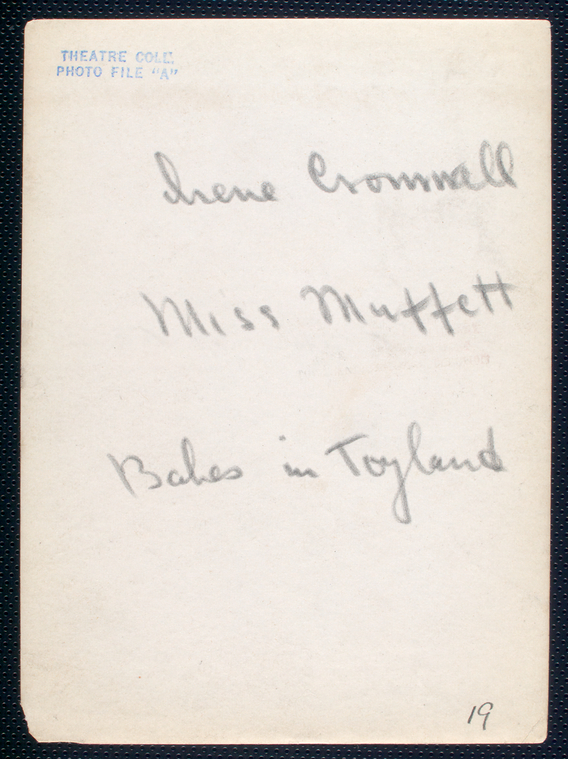 THEATRE COLL.
PHOTO FILE "A"
Irene Cromwell
Miss Muffett
Babes in Toyland
19